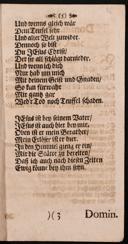 (5)
Und wenns gleich wär
Dem Teufel sehr
Und aller Welt zuwider.
Dennoch so bist
Du JEsus Christ/
Der sie all schlägt darnieder.
Und wenn ich dich
Nur hab um mich
Mit deinem Geist und Gnaden/
So kan fürwahr
Mir gantz gar
Wed'r Tod noch Teuffel schaden.
JEsus ist bey seinem Vater/
JEsus ist auch hier bey mir,
Dort ist er mein
Mein Erlöser ist er hier.
In den Himmel gieng er ein/
Mir die Stätte zu bereiten/
Daß ich auch nach diesen Zeiten
Ewig könne bey ihm seyn.
)(3 Domin.